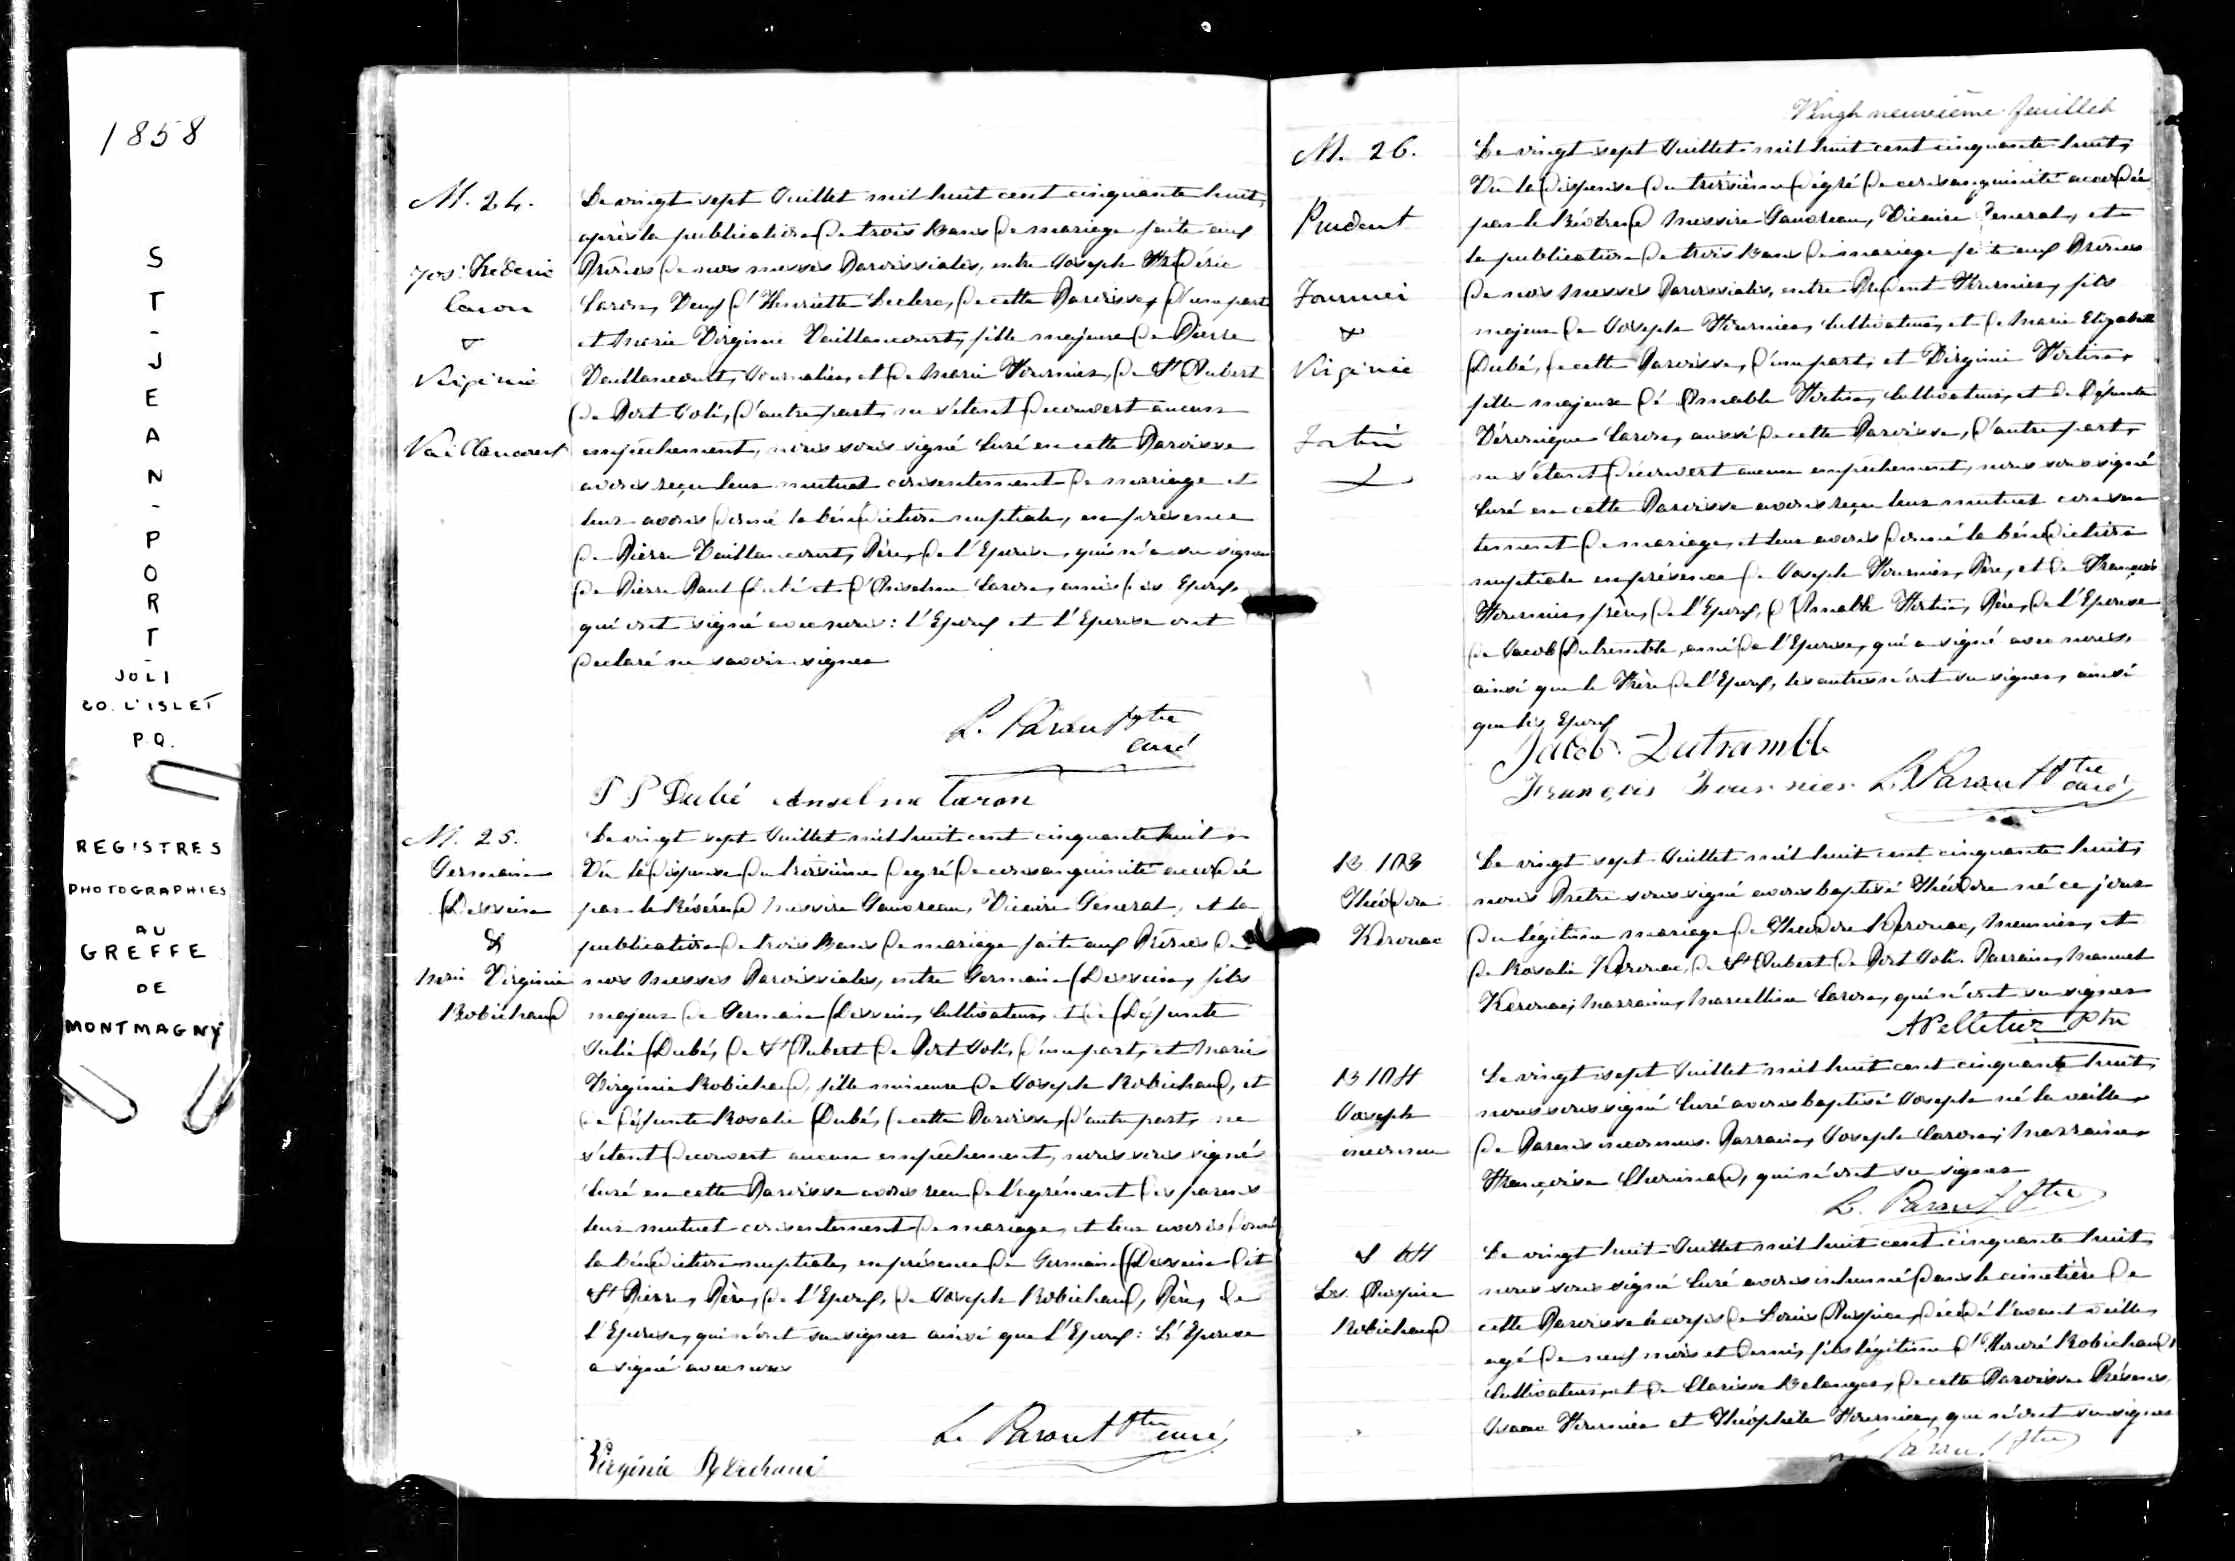 1858
ST-JEAN-PORT-
JOLI
CO. L'ISLET
P.Q.
REGISTRES
PHOTOGRAPHIES
AU
GREFFE
DE
MONTMAGNY
M. 24.
Jos. Frédéric
Caron
&
Virginie
Vaillancourt
Le vingt sept Juillet mil huit cent cinquante huit,
après la publication de trois bans de mariage faite aux
Prônes de nos messes Paroissiales, entre Joseph Frédéric
Caron, Veuf d'Henriette Leclerc, de cette Paroisse, d'une part
et Marie Virginie Vaillancourt, fille majeure de Pierre
Vaillancourt, Journalier, et de Marie Fournier, de St Aubert
de Port Joli, d'autre part, ne s'étant découvert aucun
empêchement, nous soussigné Curé en cette Paroisse
avons reçu leur mutuel consentement de mariage et
leur avons donné la bénédiction nuptiale, en présence
de Pierre Vaillancourt, Père, de l'Epouse, qui n'a su signer
de Pierre Paul Dubé et d'Anselme Caron, amis des Epoux,
qui ont signé avec nous: l'Epoux et l'Epouse ont
déclaré ne savoir signer
L. Parant Ptre
curé
P P Dubé Anselme Caron
M. 25.
Germain
Dessein
&
Marie Virginie
Robichaud
Le vingt sept Juillet mil huit cent cinquante huit,
Vu la dispense du troisième degré de consanguinité accordée
par le Révérend Messire Gauvreau, Vicaire Général, et la
publication de trois bans de mariage faite aux Prônes de
nos messes Paroissiales, entre Germain Dessein, fils
majeur de Germain Dessein, Cultivateur, et de Défunte
Julie Dubé, de St Aubert de Port Joli, d'une part, et Marie
Virginie Robichaud, fille mineure de Joseph Robichaud, et
de défunte Rosalie Dubé, de cette Paroisse, d'autre part, ne
s'étant découvert aucun empêchement, nous soussigné
Curé en cette Paroisse avons reçu de l'agrément des parens
leur mutuel consentement de mariage, et leur avons donné
la bénédiction nuptiale, en présence de Germain Dessein dit
St Pierre, Père, de l'Epoux, de Joseph Robichaud, Père, de
l'Epouse, qui n'ont su signer ainsi que l'Epoux: L'Epouse
a signé avec nous
L. Parant Ptre curé
Virginie
Vingt neuvième feuillet
M. 26.
Prudent
Fournier
&
Virginie
Fortin
Le vingt sept Juillet mil huit cent cinquante huit,
Vu la dispense du troisième dégré de consanguinité accordée
par le Révérend Messire Gauvreau, Vicaire Général, et
la publication de trois bans de mariage faite aux Prônes
de nos Messes Paroissiales, entre Prudent Fournier, fils
majeur de Joseph Fournier, Cultivateur, et de Marie Elizabeth
Dubé, de cette Paroisse, d'une part, et Virginie Fortin,
fille majeure d'Amable Fortin, Cultivateur, et de Défunte
Véronique Caron, aussi de cette Paroisse, d'autre part,
ne s'étant découvert aucun empêchement, nous soussigné
Curé en cette Paroisse avons reçu leur mutuel consen
tement de mariage, et leur avons donné la bénédiction
nuptiale en présence de Joseph Fournier, Père, et de François
Fournier, frère, de l'Epoux, d'Amable Fortin, Père, de l'Epouse
de Jacob Dutremble, ami de l'Epouse, qui a signé avec nous,
ainsi que le Frère de l'Epoux, les autres n'ont su signer, ainsi
que les Epoux
Jacob Dutrambl
François Fournier L. Parant Ptre
curé
B 103
Théodore
Kérouac
Le vingt sept Juillet mil huit cent cinquante huit,
nous Prêtre soussigné avons baptisé Théodore né ce jour
du légitime mariage de Théodore Kérouac, Meunier, et
de Rosalie Kérouac, de St Aubert de Port Joli. Parrain, Manuel
Kérouac; Marraine, Marcelline Caron, qui n'ont su signer
A Pelletier Ptre
B 104
Joseph
inconnu
Le vingt sept Juillet mil huit cent cinquante huit,
nous soussigné Curé avons baptisé Joseph né la veille,
de Parens inconnus. Parrain, Joseph Caron; Marraine,
Françoise Chouinard, qui n'ont su signer
L. Parant Ptre
S 44
Ls. Auspice
Robichaud
Le vingt huit Juillet mil huit cent cinquante huit
nous soussigné Curé avons inhumé dans le cimetière de
cette Paroisse le corps de Louis Auspice, décédé l'avant veille,
agé de neuf mois et demi, fils légitime d'Honoré Robichaud,
Cultivateur, et de Clarisse Belanger, de cette Paroisse Présens
Isaac Fournier et Théophile Fournier, qui n'ont su signer
L. Parant Ptre